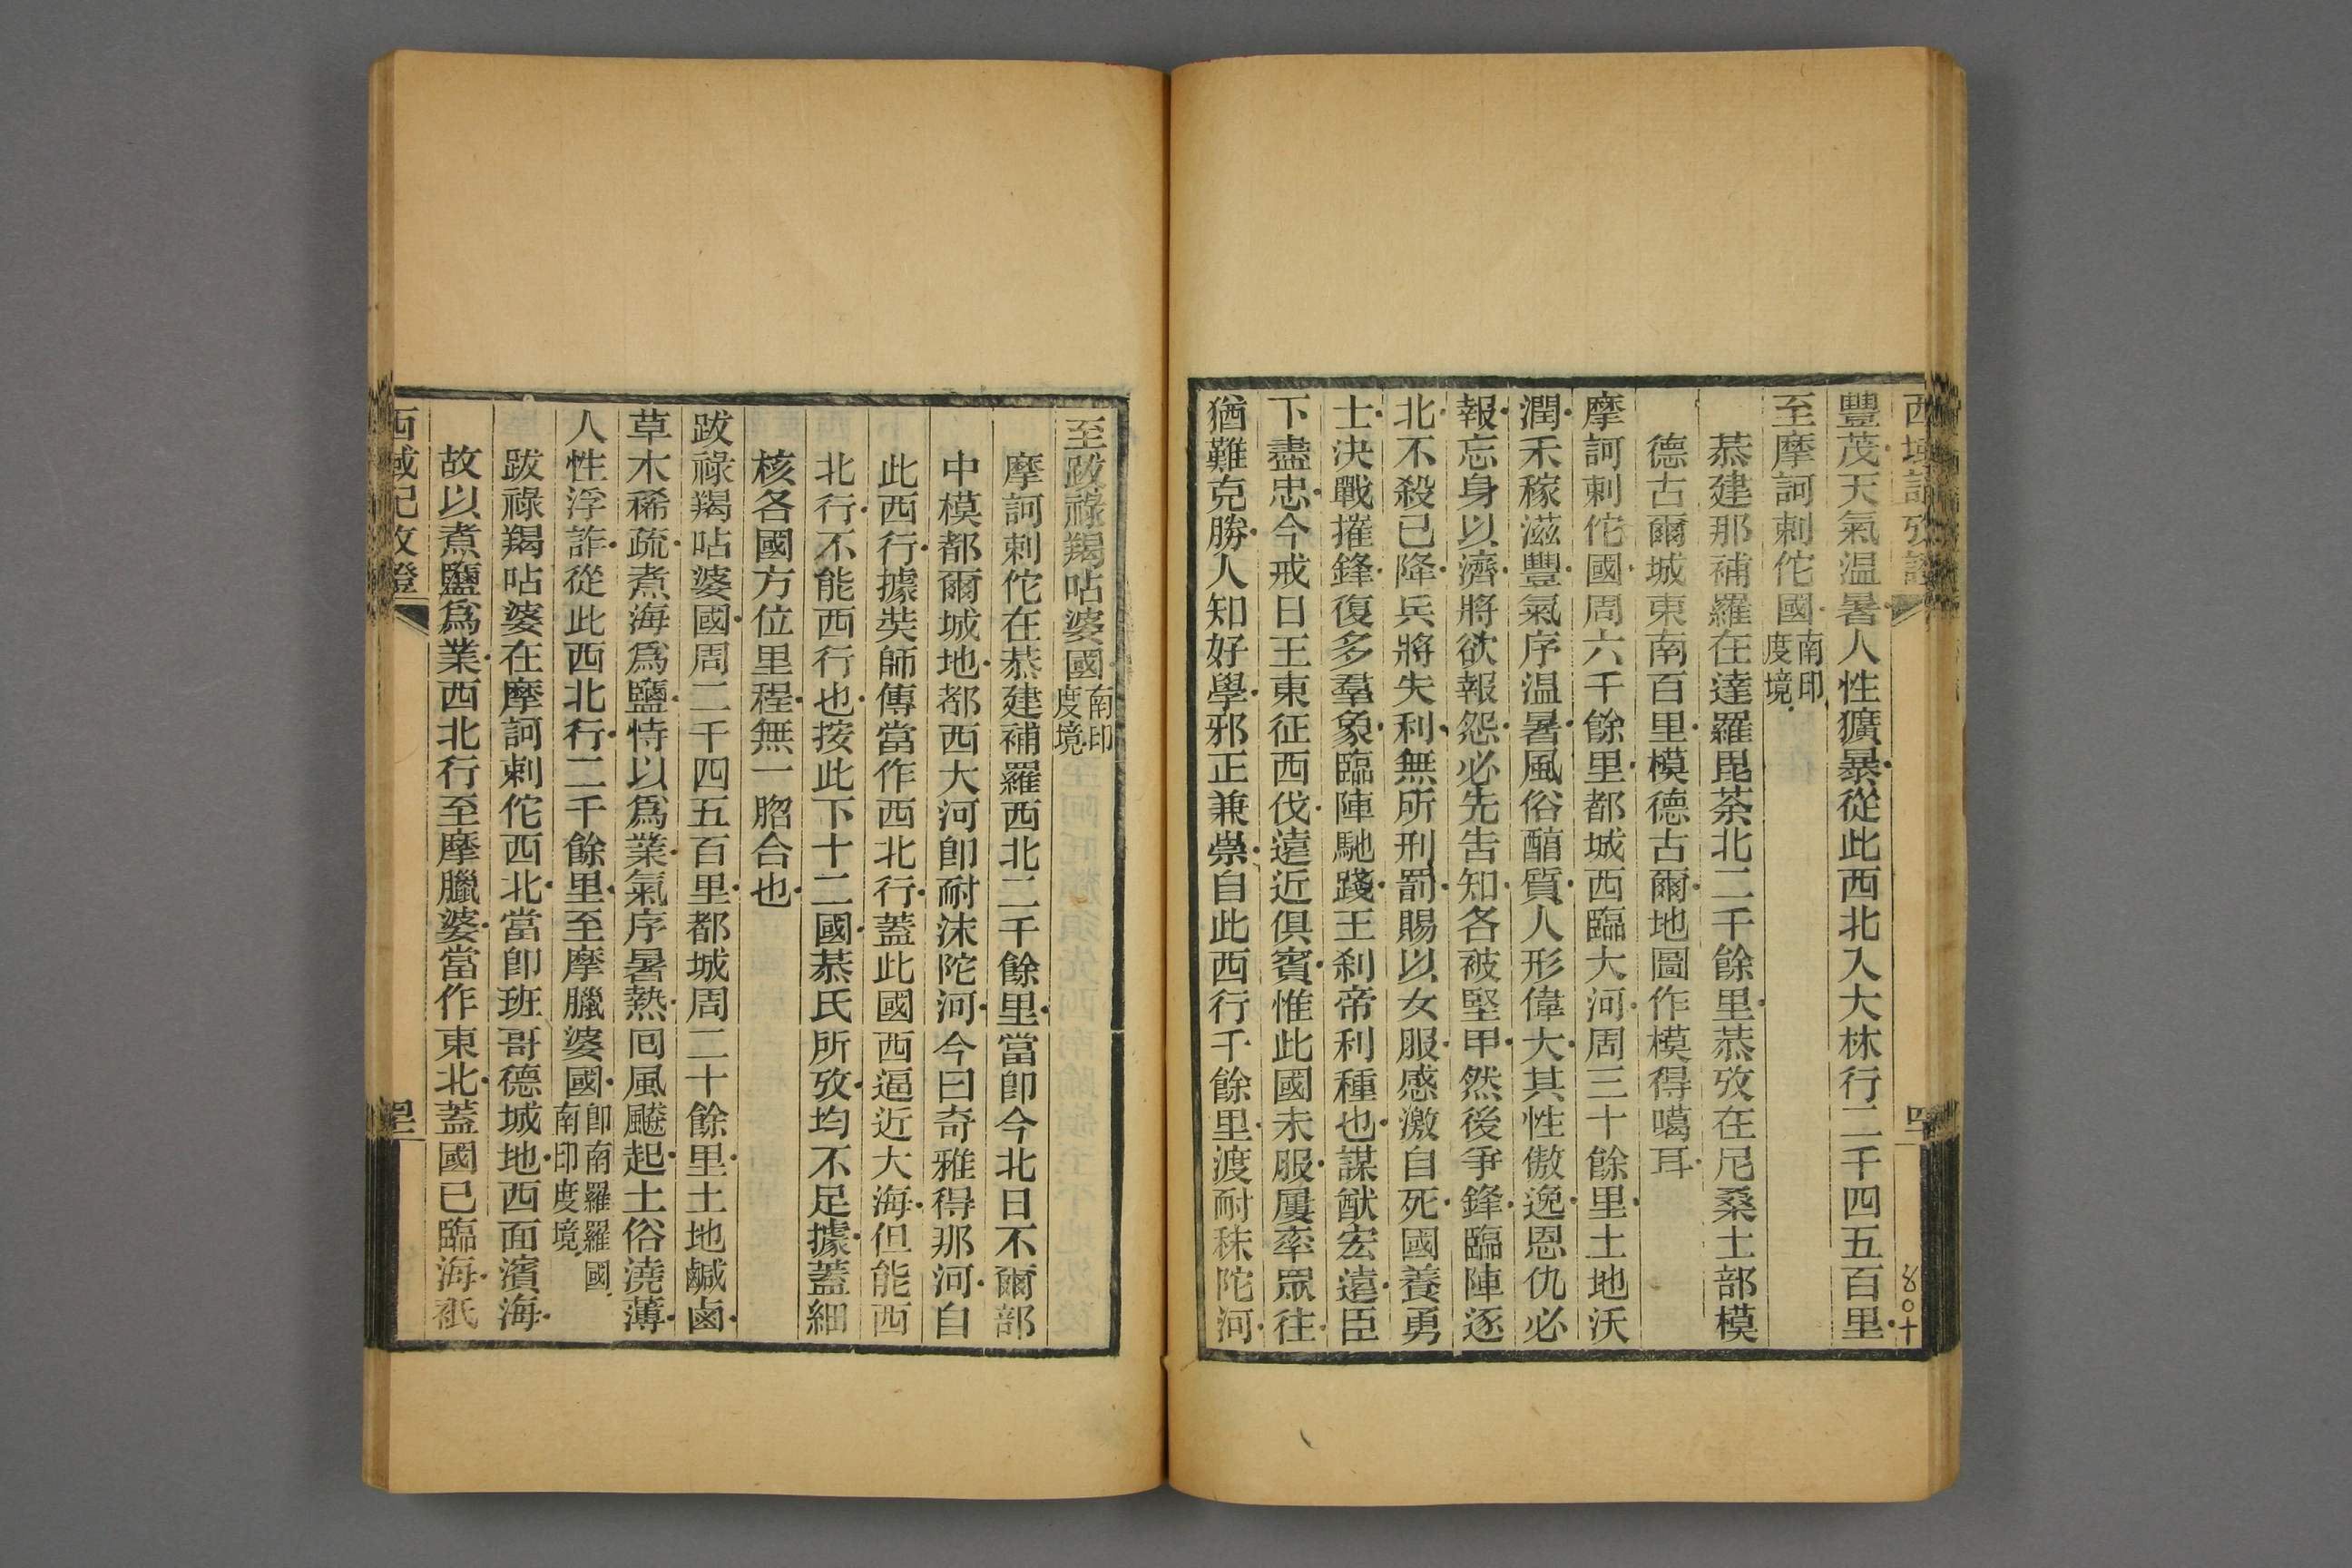 西域記攷證
豐茂天氣温暑人性獷暴從此西北入大林行二千四五百里
至摩訶剌佗國南印度境
恭建那補羅在達羅毘荼北二千餘里恭攷在尼桑士部模
德古爾城東南百里模德古爾地圖作模得噶耳
摩訶剌佗國周六千餘里都城西臨大河周三十餘里土地沃
潤禾稼滋豐氣序温暑風俗醕質人形偉大其性傲逸恩仇必
報忘身以濟將欲報怨必先告知各被堅甲然後爭鋒臨陣逐
北不殺已降兵將失利無所刑罰賜以女服感激自死國養勇
士決戰摧鋒復多羣象臨陣馳踐王刹帝利種也謀猷宏遠臣
下盡忠今戒日王東征西伐遠近俱賓惟此國未服屢率眾往
猶難克勝人知好學邪正兼崇自此西行千餘里渡耐秣陀河
至跋祿羯呫婆國南印度境
摩訶剌佗在恭建補羅西北二千餘里當卽今北日不爾部
中模都爾城地都西大河卽耐沫陀河今曰奇雅得那河自
此西行據奘師傳當作西北行蓋此國西逼近大海但能西
北行不能西行也按此下十二國恭氏所攷均不足據蓋細
核各國方位里程無一脗合也
跋祿羯呫婆國周二千四五百里都城周二十餘里土地鹹鹵
草木稀疏煮海爲鹽恃以爲業氣序暑熱囘風飈起土俗澆薄
人性浮詐從此西北行二千餘里至摩臘婆國卽南羅羅國南印度境
跋祿羯呫婆在摩訶剌佗西北當卽班哥德城地西面濱海
故以煮鹽爲業西北行至摩臘婆當作東北蓋國已臨海祇
西域記攷證